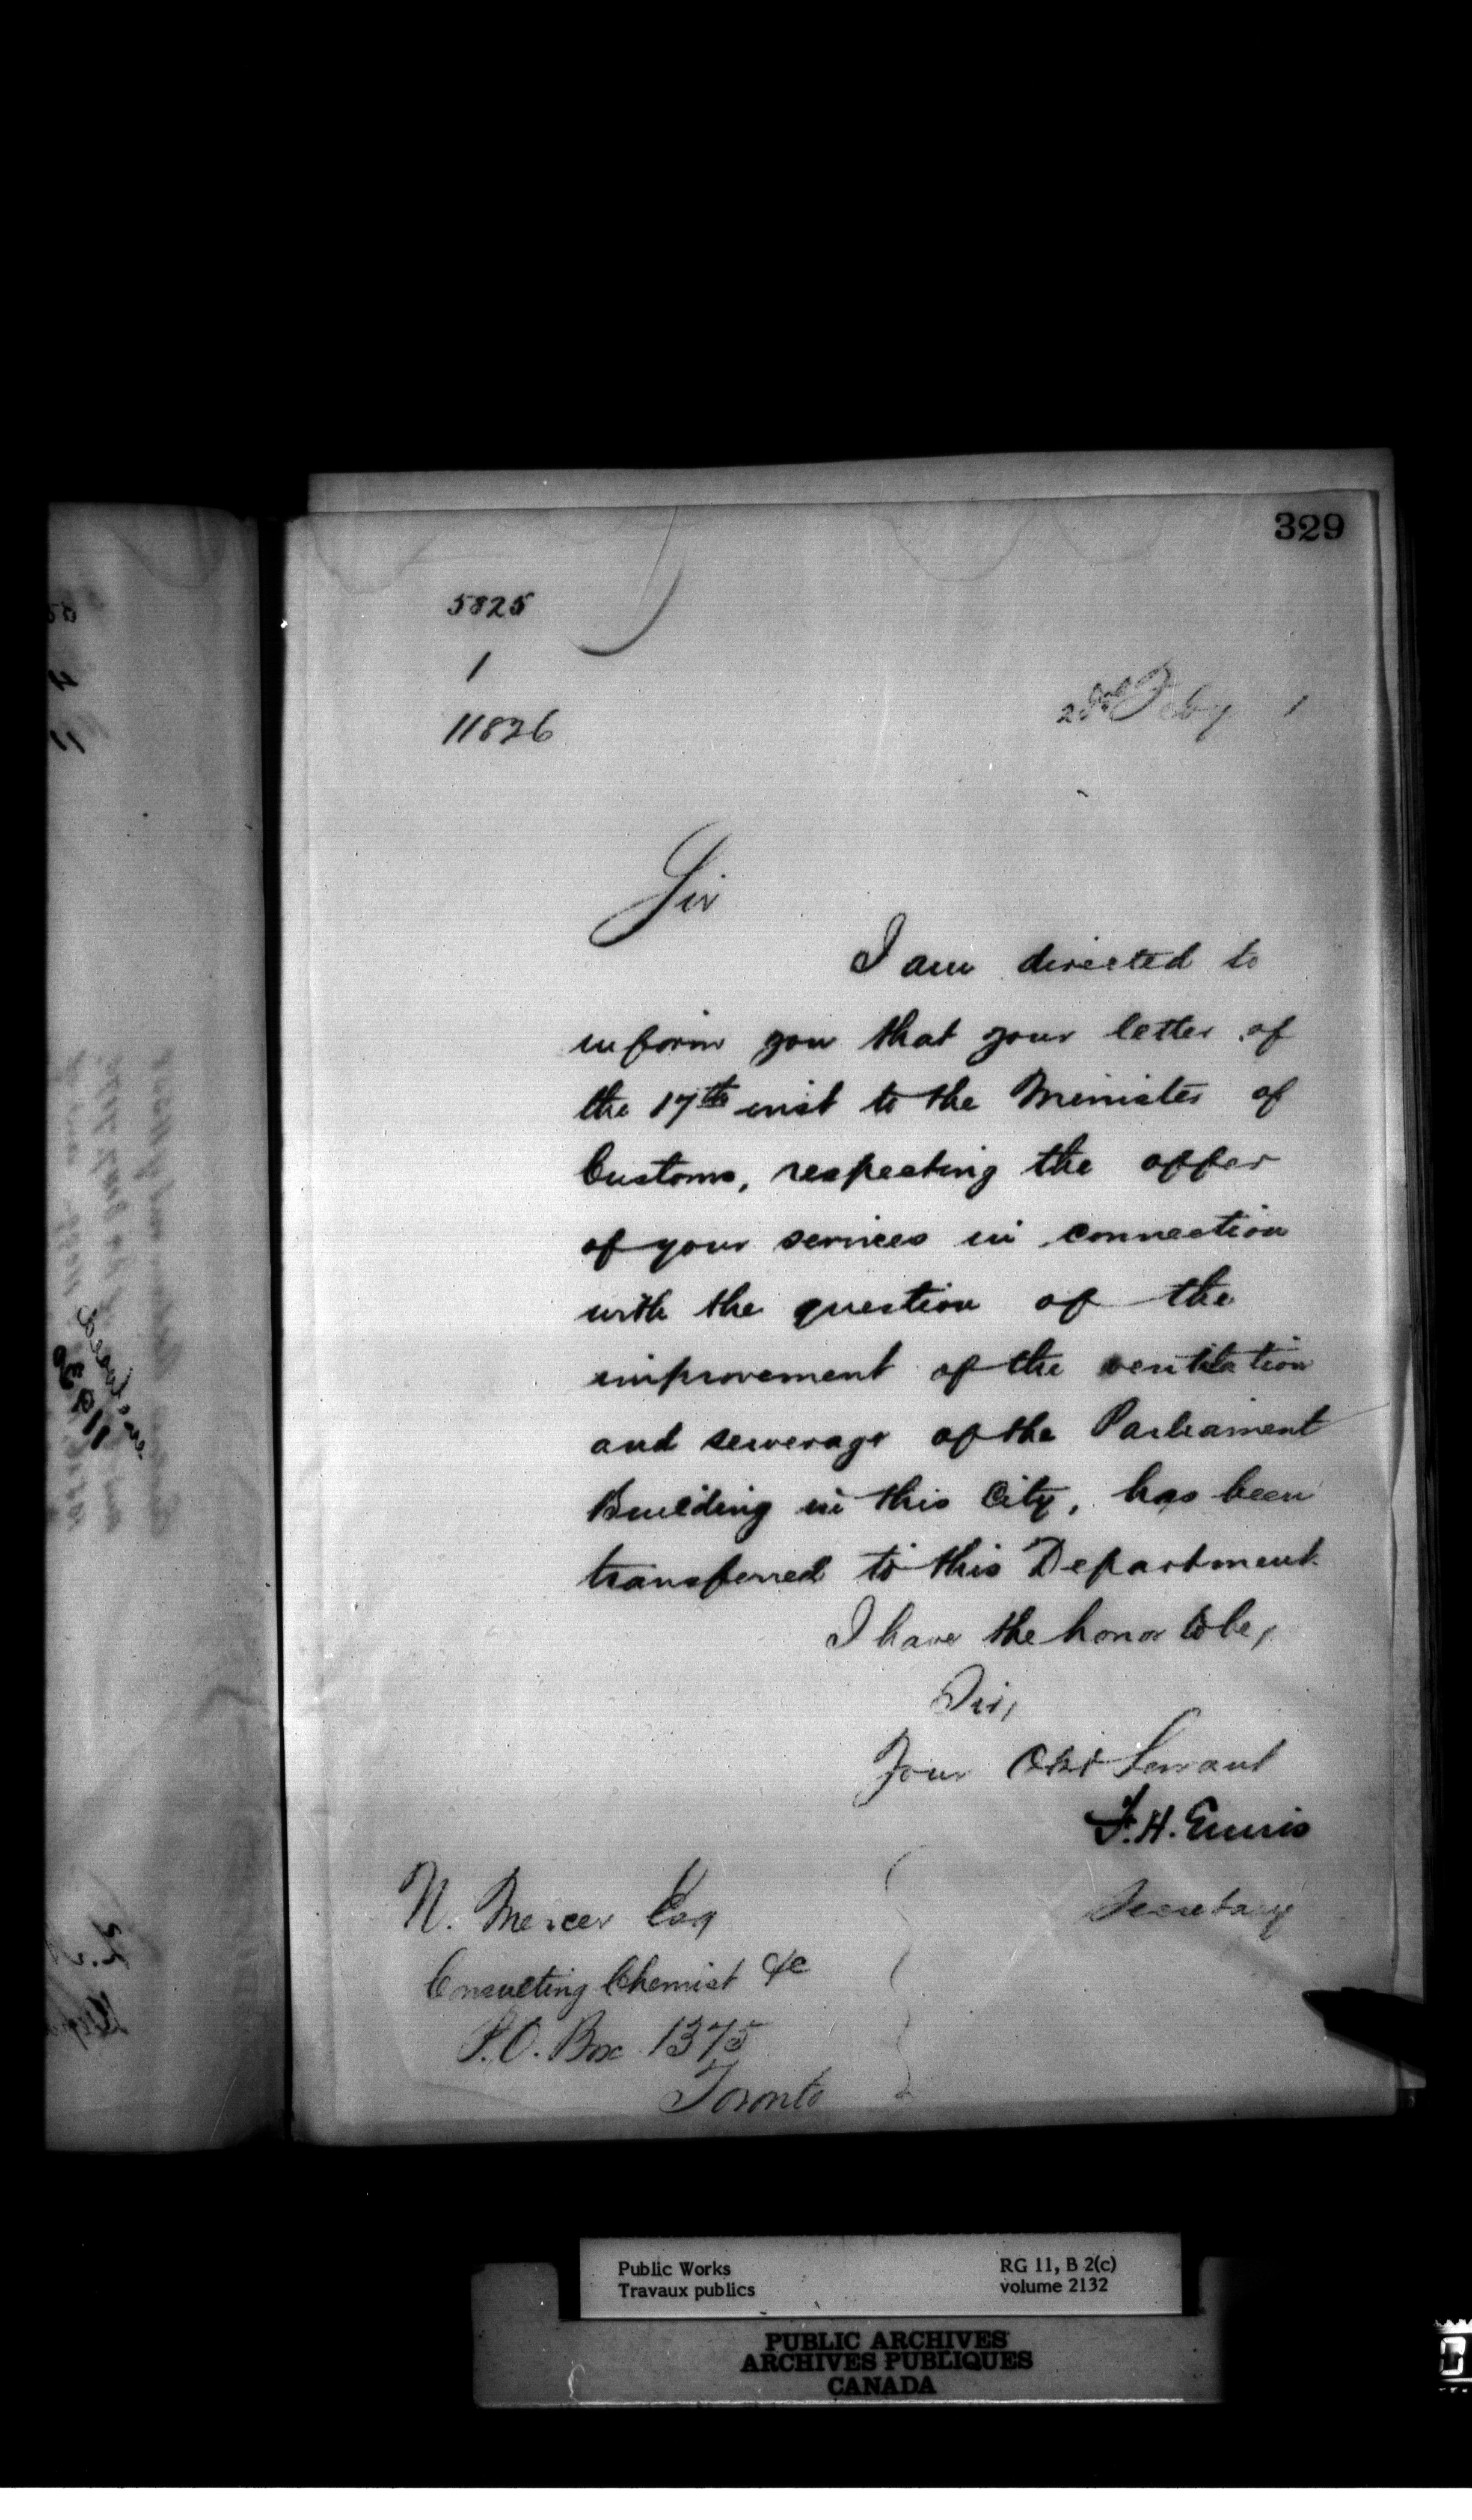 329
5825
1
11826
Feby 1
Sir
I am directed to
inform you that your letter of
the 17th inst to the Minister of
Customs, respecting the offer
of your services in connection
with the question of the
improvement of the ventilation
and sewerage of the Parliament
Building in this City, has been
transferred to this Department.
I have the honor to be,
Sir,
Your Obt Servant
F. H. Ennis
Secretary
N. Mercer Esq
Consulting Chemist &c
P.O. Box 1375
Toronto
Public Works
Travaux publics
RG 11, B 2(c)
volume 2132
PUBLIC ARCHIVES
ARCHIVES PUBLIQUES
CANADA